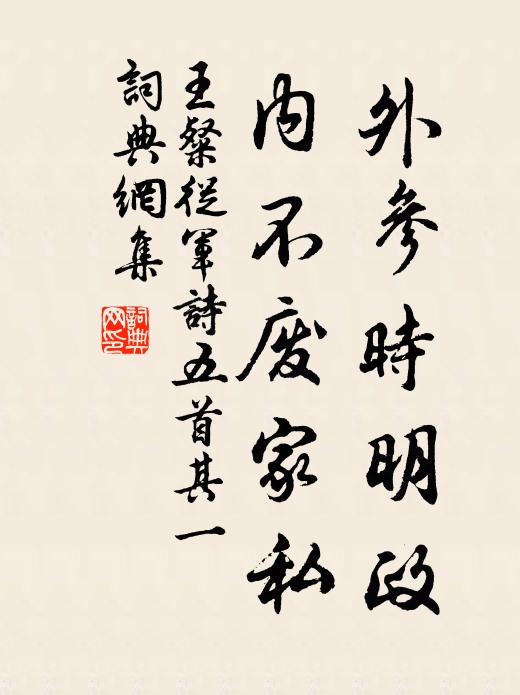 外參時明政
內不廢家私
王粲從軍詩五首其一
詞典網集
詞典
网印